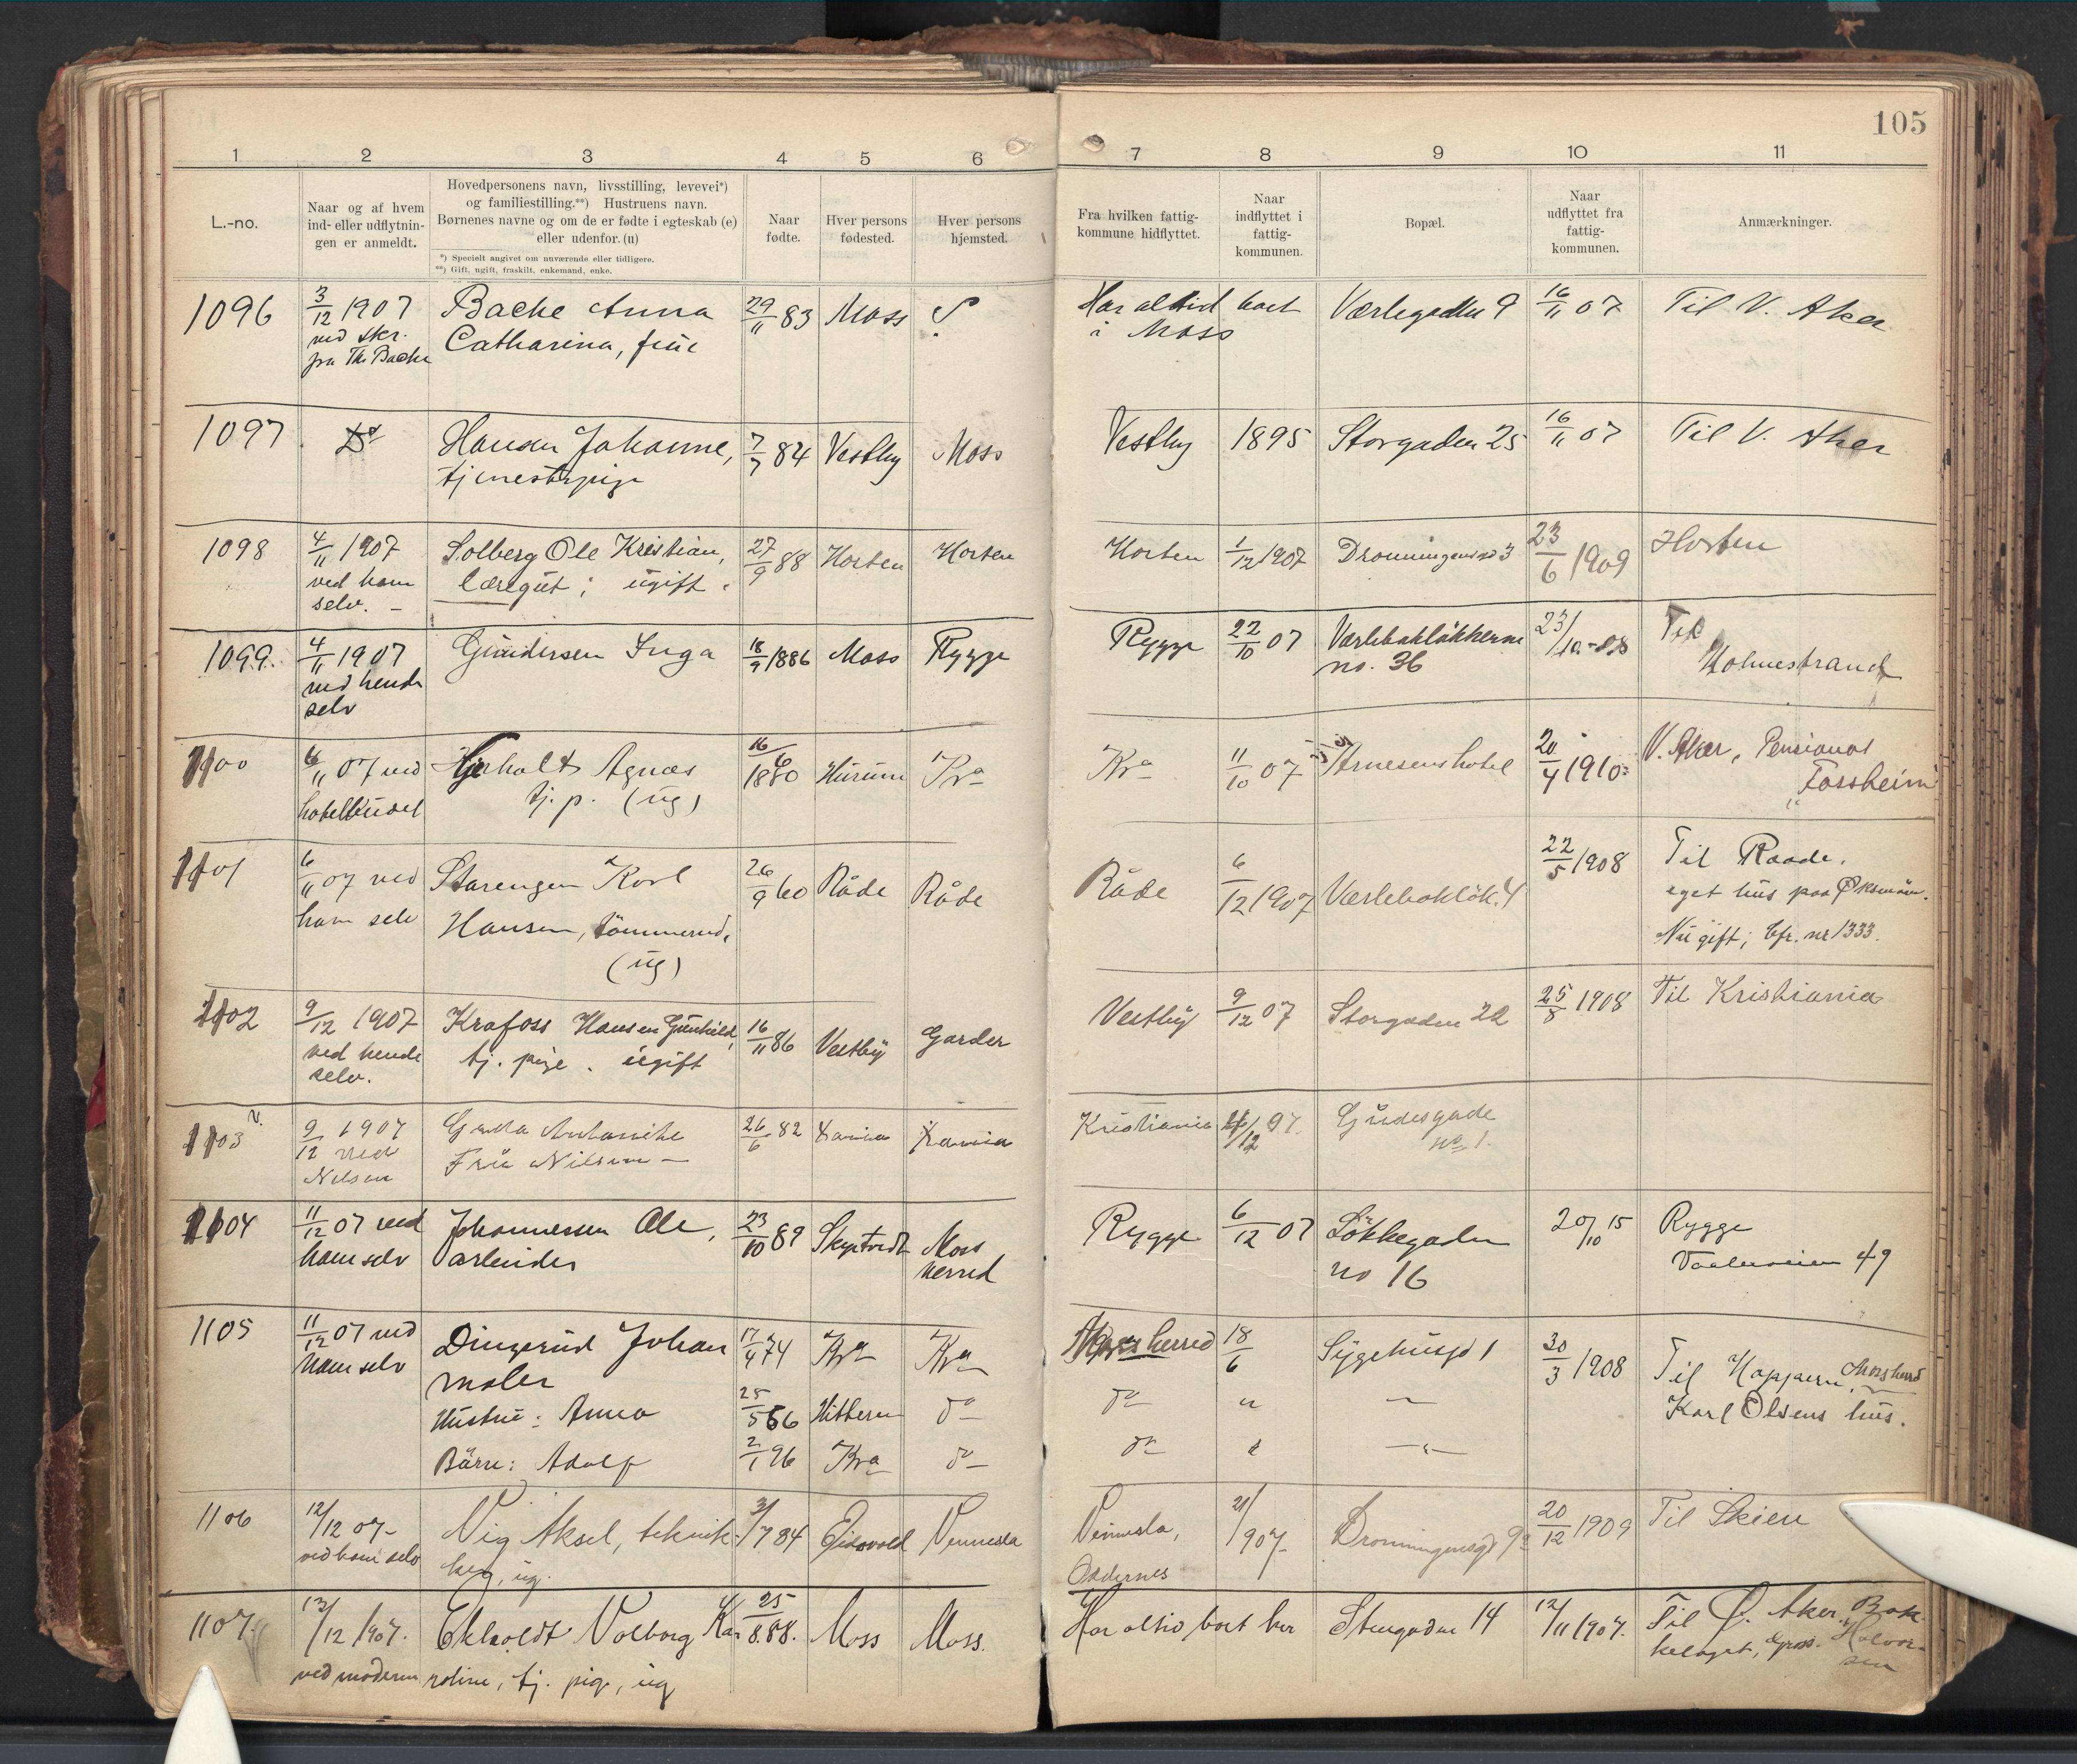 105
1 2 3 4 5 6 7 8 9 10 11
L.-no.
Naar og af hvem
ind- eller udflytnin-
gen er anmeldt.
Hovedpersonens navn, livsstilling, levevei*)
og familiestilling.**) Hustruens navn.
Børnenes navne og om de er fødte i egteskab (e)
eller udenfor. (u)
*) Specielt angivet om nuværende eller tidligere.
**) Gift, ugift, fraskilt, enkemand, enke.
Naar
fødte.
Hver persons
fødested.
Hver persons
hjemsted.
Fra hvilken fattig-
kommune hidflyttet.
Naar
indflyttet i
fattig-
kommunen.
Bopæl.
Naar
udflyttet fra
fattig-
kommunen.
Anmærkninger.
1096 3/12 1907 Bache Anna 29/11 83 Moss ? Har altid boet Værlegaden 9 16/11 07 Til V. Aker
ved skr. Catharina, frk i Moss
fra Th. Bache
1097 Do Hansen Johanne, 7/7 84 Vestby Moss Vestby 1895 Storgaden 25 16/11 07 Til V. Aker
tjenestepige
1098 4/11 1907 Solberg Ole Kristian, 27/9 88 Horten Horten Horten 1/12 1907 Dronningensgd 3 23/6 1909 Horten
ved ham læregut; ugift.
selv. –
1099. 4/11 1907 Gundersen Inga 18/9 1886 Moss Rygge Rygge 22/10 07 Værlebakløkkerne 23/10-08 Til
ved hende no. 36 Holmestrand
selv
1100 6/11 07 ved Agnes 16/6 1880 Hurum Kra Kra 11/10 07 Arnesens hotel 20/4 1910 V. Aker, Pensionat
hotelbudet tj. p. (ug) "Fossheim"
1101 6/11 07 ved Starengen Karl 26/9 60 Råde Råde Råde 6/12 1907 Værlebakløk. 4 22/5 1908 Til Raade.
ham selv Hansen, tømmermd. eget hus paa
(ug) Nu gift; cfr. nr 1333.
1102 9/12 1907 Krafoss Hansen Gunhild, 16/11 86 Vestby Garder Vestby 9/12 07 Storgaden 22 25/8 1908 Til Kristiania
ved hende tj. pige. ugift
selv.
1103 9/12 1907 26/6 82 Kristiania Gudesgade
ved Fru Nilsen – no 1.
Nilsen
1104 11/12 07 ved Johannessen Ole, 23/10 89 Skiptvedt Moss Rygge 6/12 07 Løkkegaden 20/10 15 Rygge
ham selv arbeider herred no 16 Vaalerveien 49
1105 11/12 07 ved Dingerud Johan 17/4 74 Kra Kra Moss herred 18/6 Sygehusgd 1 30/3 1908 Til Moss herred
ham selv maler Karl Olsens hus.
Hustru: Anna 25/5 66 Hitteren do do " –
Børn: Adolf 2/1 96 Kra do do " –"–
1106 12/12 07– Vig Aksel, teknik- 3/7 84 Eidsvold Vennesla Vennesla, 21/ 907– Dronningensgd 9 20/12 1909 Til Skien
ved ham selv ker, ug. Oddernes
1107. 12/12 1907. Ekholdt Valborg Ka- 25/8.88. Moss Moss. Har altid boet her Stengaden 14 12/11 1907. Til Ø. Aker. Bak-
ved moderen roline, tj. pige, ug kelaget, Halvor-
sen